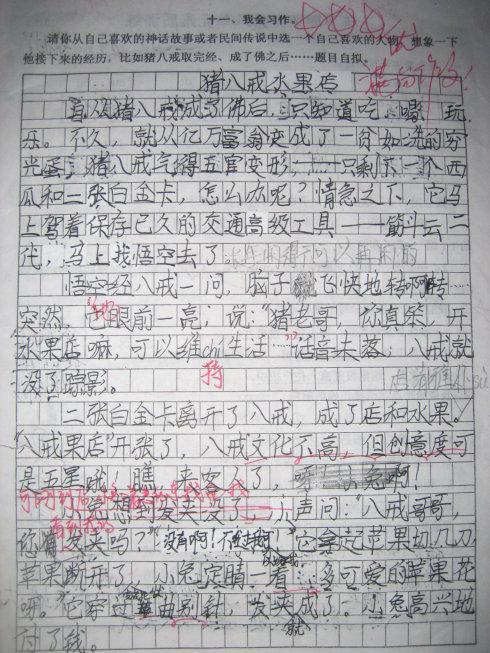 十一、我会习作。
请你从自己喜欢的神话故事或者民间传说中选一个自己喜欢的人物，想象一下
他接下来的经历，比如猪八戒取完经、成了佛之后……题目自拟。
猪八戒水果店
自从猪八戒成了佛后，只知道吃、喝、玩、
乐。不久，就从亿万富翁变成了一贫如洗的穷
光蛋，猪八戒气得五官变形，——只剩下一个西
瓜和二张白金卡，怎么办呢？情急之下，它马
上驾着保存已久的交通高级工具——筋斗云二
代，马上找悟空去了
悟空经八戒一问，脑子飞快地转啊转……
突然，它眼前一亮，说：“猪老哥，你真笨，开
水果店嘛，可以维chi生活……”话音未落，八戒就
持
没了踪影。
二张白金卡离开了八戒，成了店和水果。
“八戒果店”开张了，八戒文化不高，但创意度可
是五星哦！瞧，来客人了，小兔啊！
小兔想到发夹没了，小声问：“八戒哥哥，
你有发夹吗？”“没有啊！不过……”它拿起苹果切几刀，
苹果断开了，小兔定睛一看：多可爱的苹果花
呀。它穿过曲别针，发夹成了。小兔高兴地
付了钱。